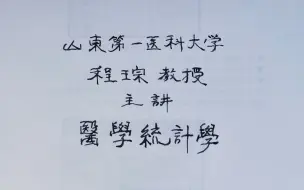 山東第一医科大学
程琮 教授
主讲
醫學統計學